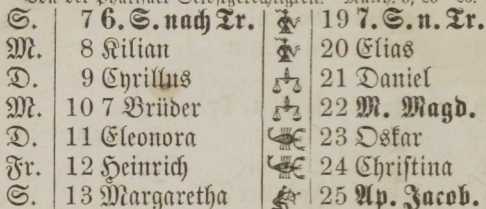 S. 7 6. S. nach Tr. 19 7. S. n. Tr.
M. 8 Kilian 20 Elias
D. 9 Cyrillus 21 Daniel
M. 10 7 Brüder 22 M. Magd.
D. 11 Eleonora 23 Oskar
Fr. 12 Heinrich 24 Christina
S. 13 Margaretha 25 Ap. Jacob.